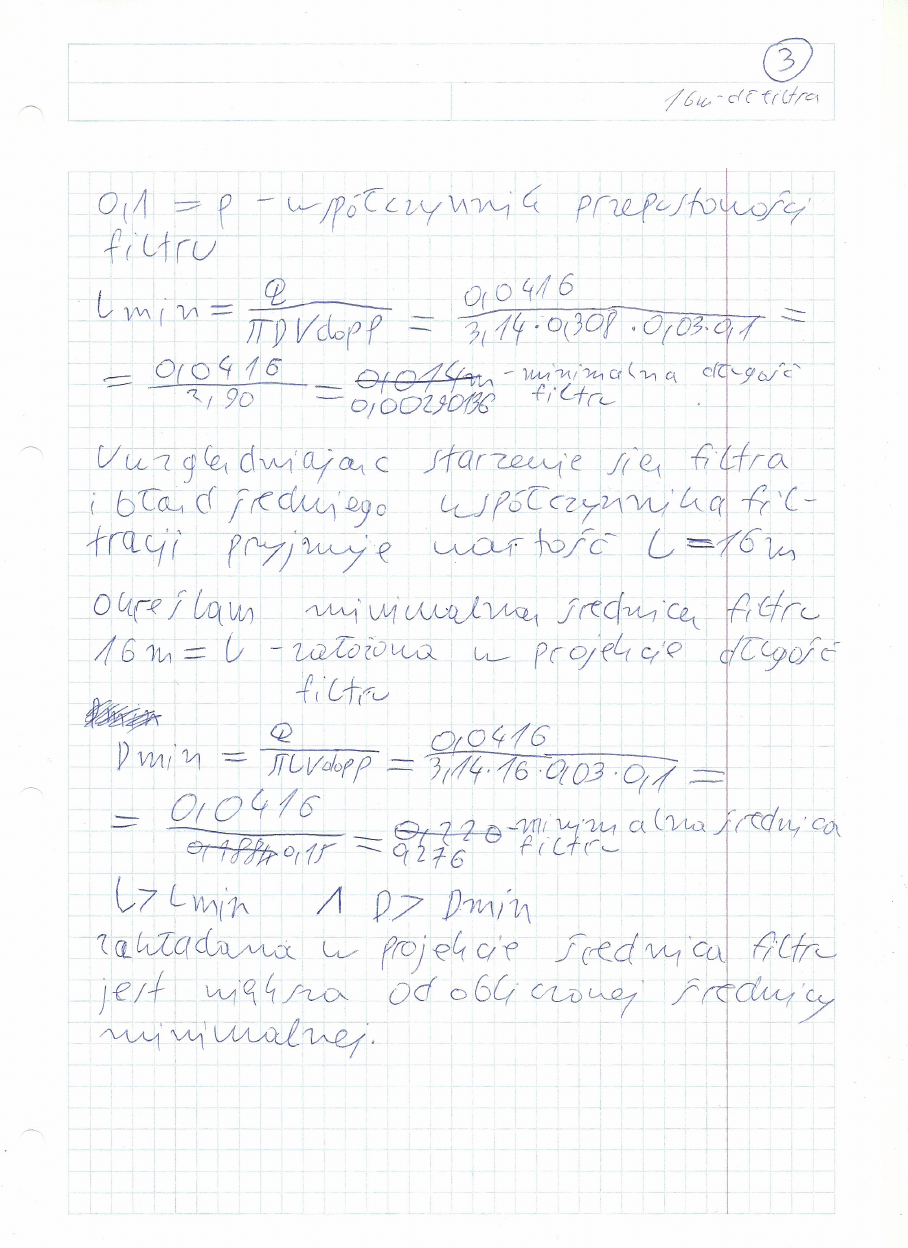 3
16m-dł filtra
0,1 = p - współczynnik przepustowości
filtru
L min = Q / πDVdopp = 0,0416 / 3,14·0,308·0,03·0,1 =
= 0,0416 / 2,90 = 0,014m 0,00290136 - minimalna długość filtru
Uwzględniając starzenie się filtra
i błąd średniego współczynnika fil-
tracji przyjmuję wartość L = 16m
Określam minimalną średnicę filtru
16m = L - założona w projekcie długość
filtru
Dmin = Q / πLVdopp = 0,0416 / 3,14·16·0,03·0,1 =
= 0,0416 / 0,15 = 0,276 - minimalna średnica filtru
L > Lmin ∧ D > Dmin
zakładana w projekcie średnica filtru
jest większa od obliczonej średnicy
minimalnej.